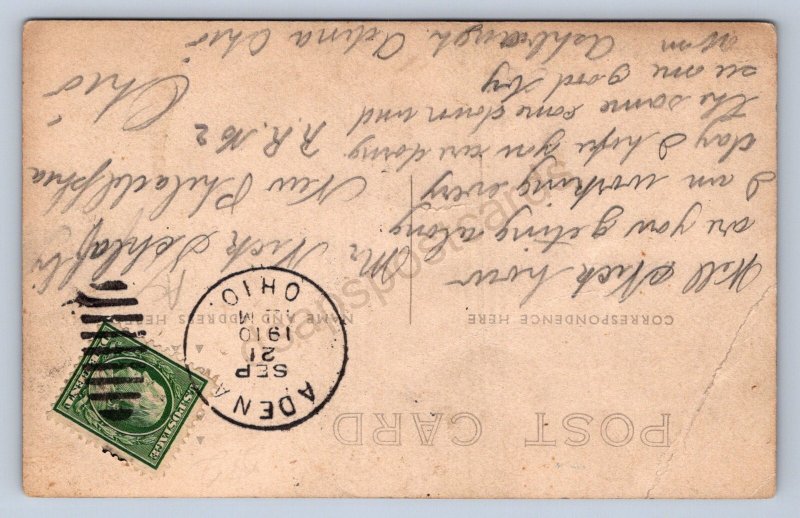 POST CARD
CORRESPONDENCE HERE
NAME AND ADDRESS HERE
ADENA
SEP
21
1910
M
OHIO.
U.S. POSTAGE
Will Nick how
are you geting along
I am working every
day I hope you are doing
the same come down and
see me good by
Ashbaugh Adena Ohio
Mr. Nick
New Philadelphia
R.R. No 2
Ohio